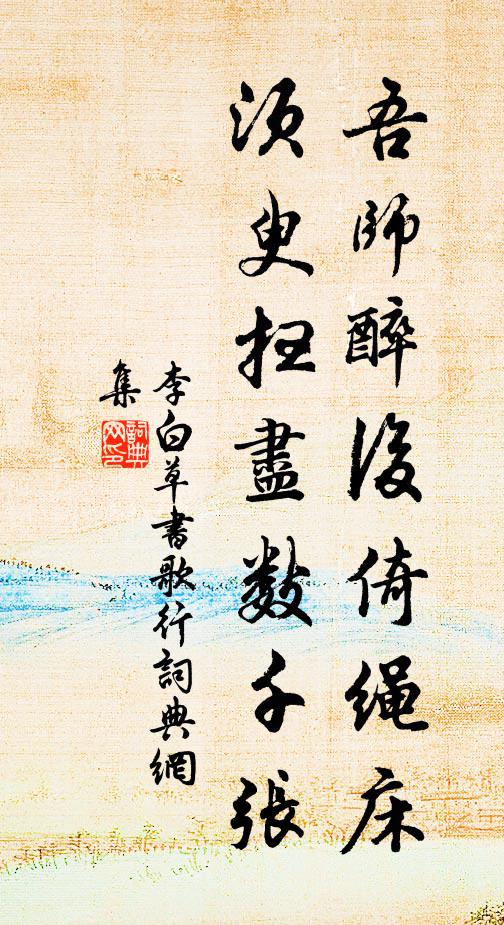 吾師醉後倚繩床
須叟抂盡數千張
李白草書歌行詞典網
集
詞典網印